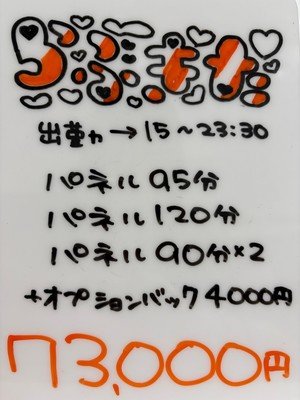 出勤→15～23:30
パネル95分
パネル120分
パネル90分×2
+オプションバック4000円
73,000円